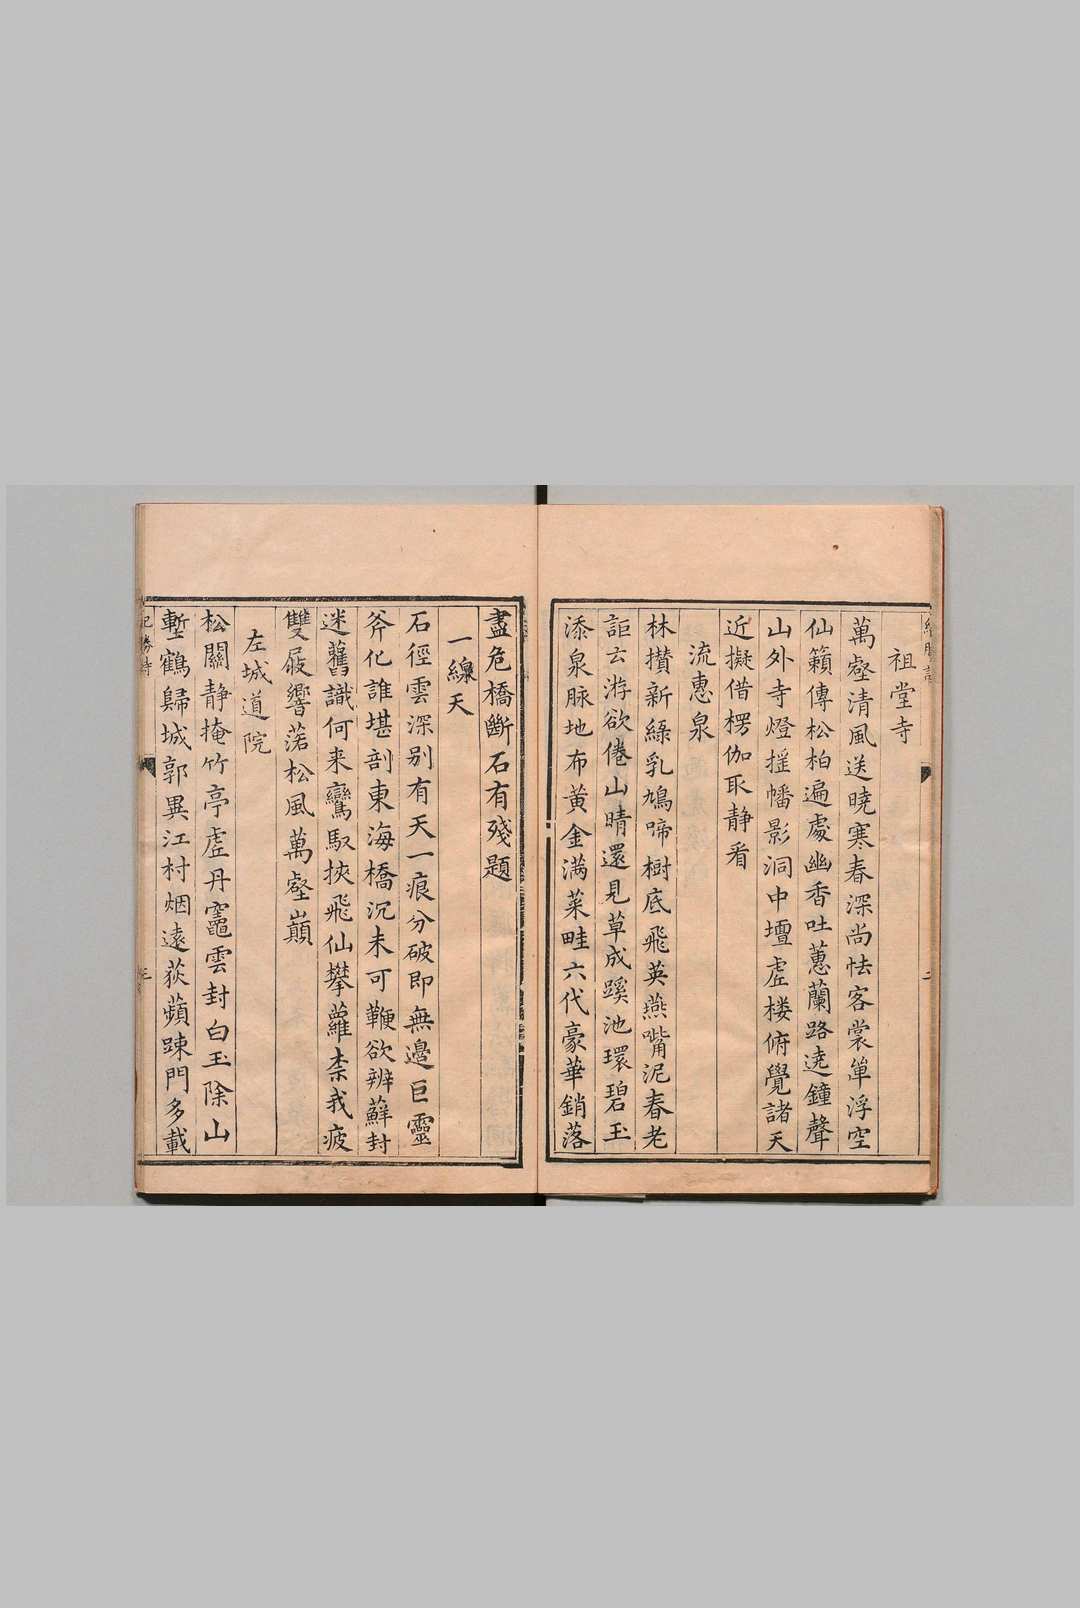 祖堂寺
萬壑清風送曉寒春深尚怯客裳單浮空
仙籟傳松柏遍處幽香吐蕙蘭路遶鐘聲
山外寺燈搖幡影洞中壇虛楼俯覺諸天
近擬借楞伽取静看
流惠泉
林攢新綠乳鳩啼樹底飛英燕嘴泥春老
詎云游欲倦山晴還見草成蹊池環碧玉
添泉脉地布黄金满菜畦六代豪華銷落
盡危橋斷石有殘題
一線天
石徑雲深别有天一痕分破即無邊巨靈
斧化誰堪剖東海橋沉未可鞭欲辨蘚封
迷舊識何来鸞馭挾飛仙攀蘿柰我疲
雙屐響落松風萬壑巔
左城道院
松關靜掩竹亭虛丹竈雲封白玉除山
塹鶴歸城郭異江村烟遠荻蘋踈門多載
記勝詩
三
二